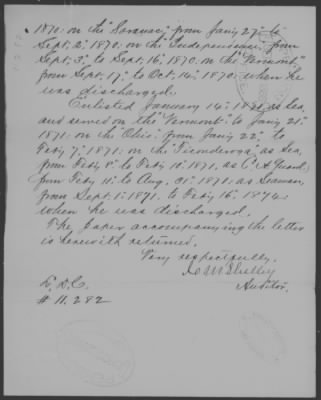 1870: on the "Saranac," from Jan'y 27" to
Sept. 2," 1870: on the "Independence," from
Sept. 3," to Sept. 16," 1870: on the "Vermont,"
from Sept. 17," to Oct. 14," 1870: when he
was discharged.
Enlisted January 14," 1871, as Sea,
and served on the "Vermont" to Jan'y 21"
1871: on the "Ohio," from Jan'y 22," to
Feb'y 7," 1871: on the "Ticonderoga," as Sea,
from Feb'y 8" to Feb'y 10" 1871, as
from Feb'y 11" to Aug. 31," 1871: as Seaman,
from Sept. 1" 1871, to Feb'y 16," 1874
when he was discharged.
The paper accompanying the letter
is herewith returned.
Very respectfully,
C M Shelley
Auditor.
# 11.282